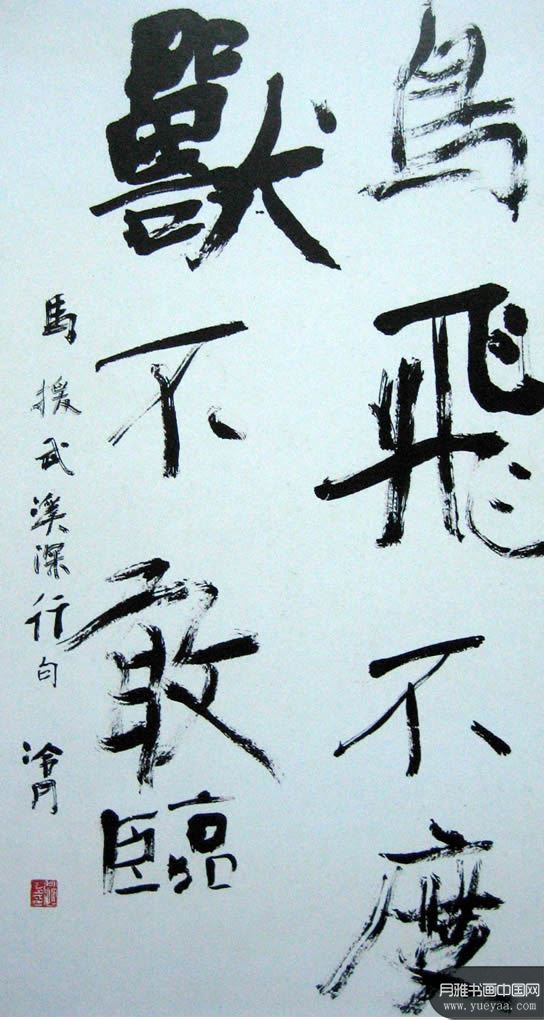 鳥飛不度
獸不敢臨
馬援武溪深行句
冷門
月雅书画中国网
www.yueyaa.com